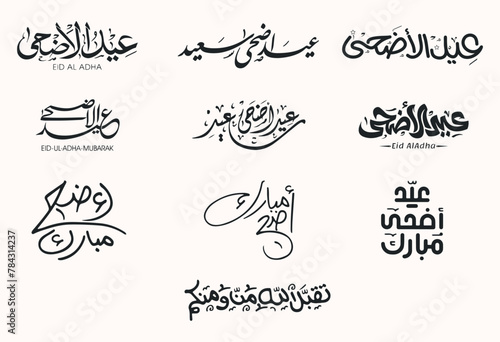 عيد الأضحى
EID AL ADHA
عيد أضحى سعيد
عيد الأضحى
عيد الأضحى
EID-UL-ADHA-MUBARAK
عيد أضحى
عيد الأضحى
Eid AlAdha
أضحى
مبارك
أضحى مبارك
عيد
أضحى
مبارك
تقبل الله منا ومنكم
Adobe Stock | #784314237